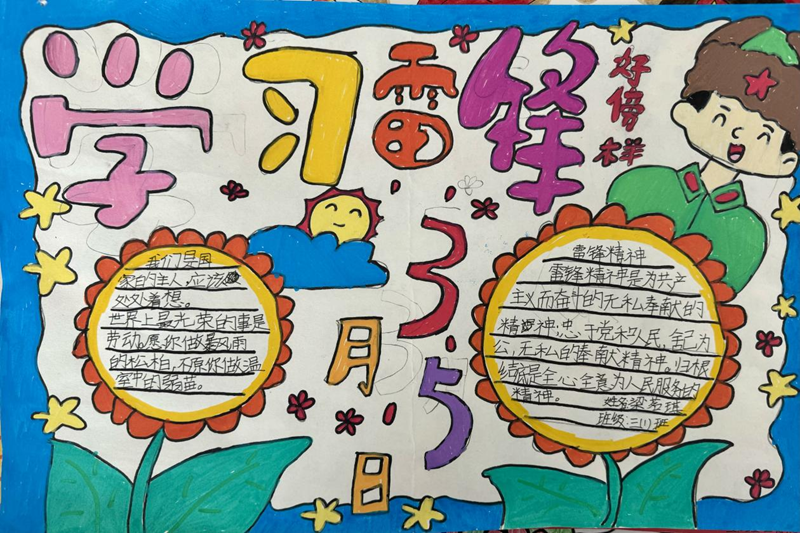 学习雷锋
好傍样
3月5日
我们是国
家的主人,应该
处处着想。
世界上最光荣的事是
劳动,愿你做暴风雨
的松柏,不原你做温
室中的弱苗。
雷锋精神
雷锋精神是为共产
主义而奋斗的无私奉献的
精神,忠于党和人民,舍己为
公,无私的奉献精神。归根
结底是全心全意为人民服务的
精神。
姓名:梁若琪
班级:三(1)班